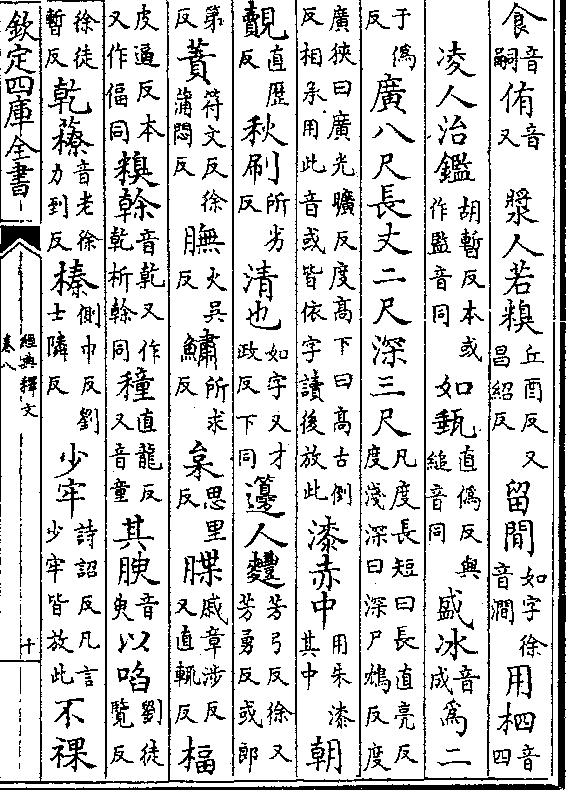 食音嗣侑音又　漿人若糗丘酉反又昌紹反留間如字徐音澗用柶音四
凌人治鑑胡暫反本或作監音同如甀直偽反與縋音同盛冰音成為二
于偽反廣八尺長丈二尺深三尺凡度長短曰長直亮反度淺深曰深尸鴆反度
廣狹曰廣光曠反度高下曰高古到反相承用此音或皆依字讀後放此漆赤中用朱漆其中朝
覿直歷反秋刷所劣反清也如字又才政反下同籩人麷芳弓反徐又芳勇反或郎
第反蕡符文反徐蒲悶反膴火吳反鱐所求反枲思里反牒戚章涉反又直輒反楅
皮逼反本又作偪同糗餘音乾又作乾析餘同穜直龍反又音童其腴音臾以啗劉徒覽反
徐徒暫反乾䕩音老徐力到反榛側巾反劉士隣反　少牢詩詔反凡言少牢皆放此不祼
欽定四庫全書　經典釋文卷八　十